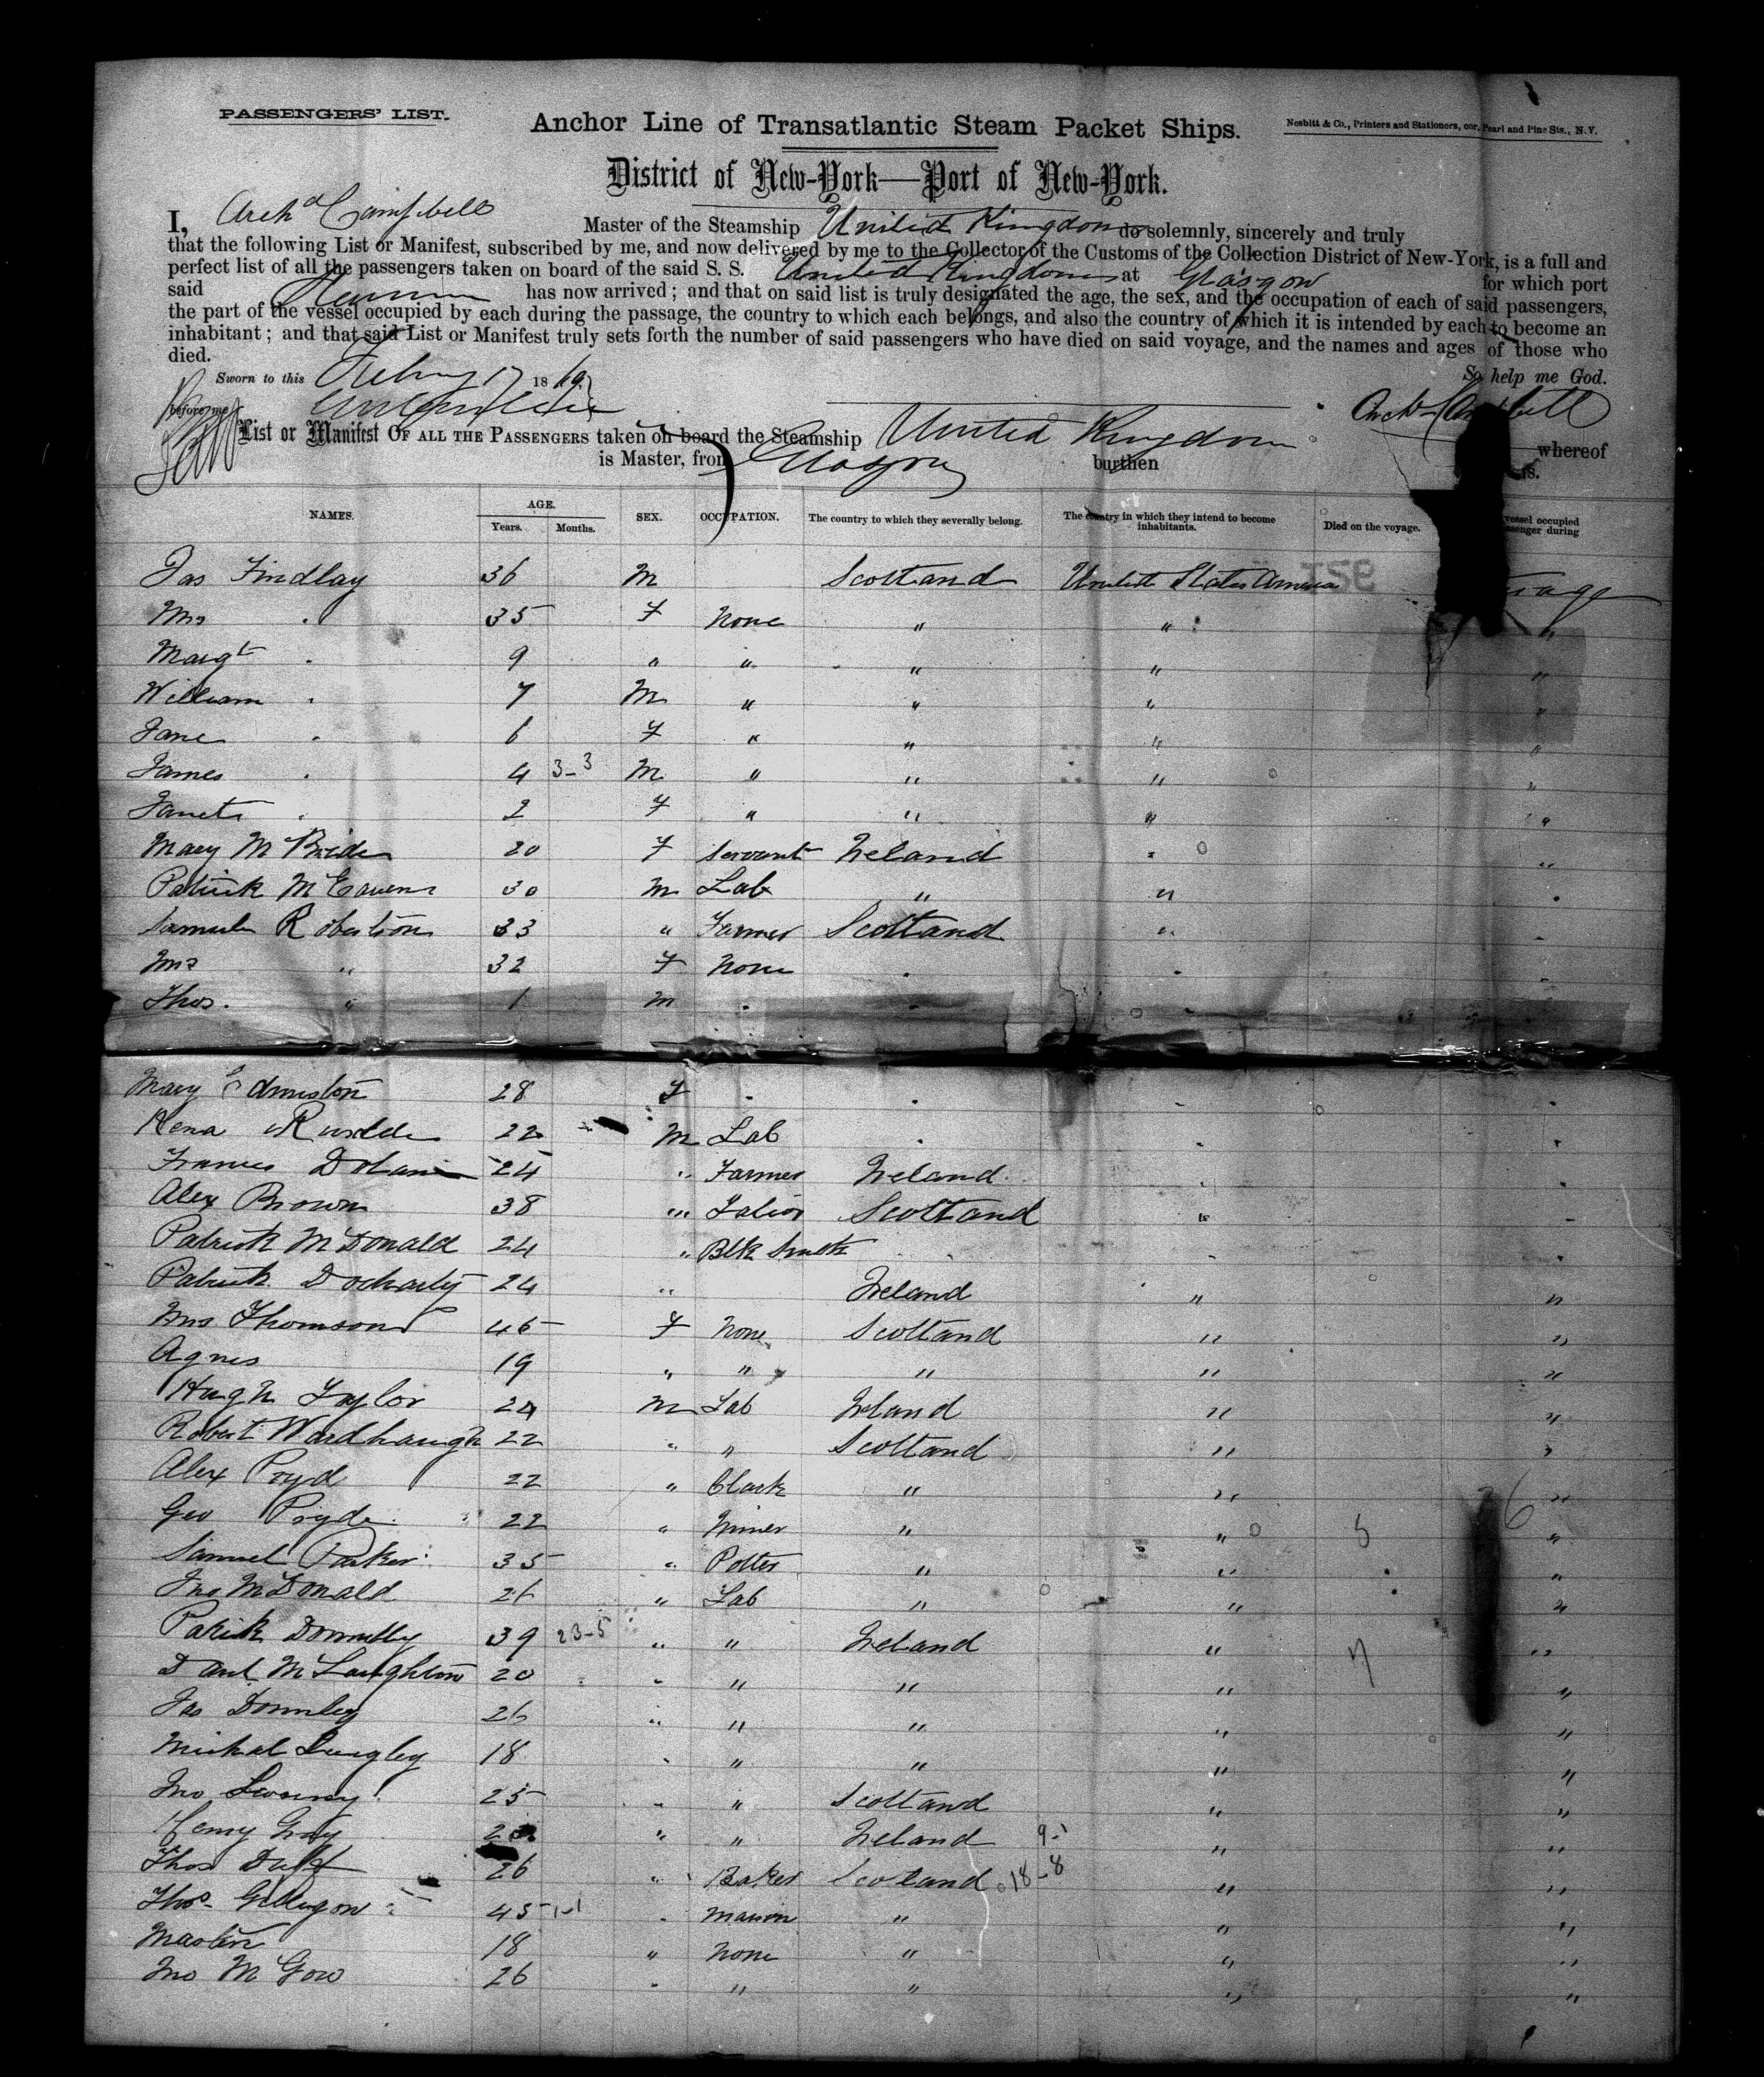 PASSENGERS' LIST.
Anchor Line of Transatlantic Steam Packet Ships.
Nesbitt & Co., Printers and Stationers, cor. Pearl and Pine Sts., N.Y.
District of New-York—Port of New-York.
I, Archd Campbell Master of the Steamship United Kingdom do solemnly, sincerely and truly
that the following List or Manifest, subscribed by me, and now delivered by me to the Collector of the Customs of the Collection District of New-York, is a full and
perfect list of all the passengers taken on board of the said S. S. United Kingdom at Glasgow for which port
said Steamer has now arrived; and that on said list is truly designated the age, the sex, and the occupation of each of said passengers,
the part of the vessel occupied by each during the passage, the country to which each belongs, and also the country of which it is intended by each to become an
inhabitant; and that said List or Manifest truly sets forth the number of said passengers who have died on said voyage, and the names and ages of those who
died. So help me God.
Sworn to this Febry 17 1869
before me Archd Campbell
List or Manifest OF ALL THE PASSENGERS taken on board the Steamship United Kingdom whereof
is Master, from Glasgow burthen
NAMES. AGE. Years. Months. SEX. OCCUPATION. The country to which they severally belong. The country in which they intend to become inhabitants. Died on the voyage. vessel occupied
Jas Findlay 36 M Scotland United States America
Mrs " 35 F None " " "
Margt " 9 " " " " "
William " 7 M " " " "
Jane " 6 F " " " "
James " 4 3-3 M " " " "
Janet " 2 F " " " "
Mary McBride 20 F Servant Ireland " "
Patrick McEawen 30 M Lab " " "
Samule Robertson 33 " Farmer Scotland " "
Mrs " 32 F None " " "
Thos. " 1 M " " " "
Mary Edmiston 28 F " " " "
22 M Lab " " "
Frances Dolan 24 " Farmer Ireland " "
Alex Brown 38 " Talior Scotland " "
Patrick McDonald 24 " Blk Smith " " "
Patrick Docharty 24 " Ireland " "
Mrs Thomson 45 F None Scotland " "
Agnes 19 " " " " "
Hugh Taylor 24 M Lab Ireland " "
Robert Wardhaugh 22 " " Scotland " "
Alex Pryd 22 " Clark " " "
Geo Pryde 22 " Miner " " "
Samuel Parker 35 " Potter " " "
Jno McDonald 26 " Lab " " "
Patrik Donnelly 39 23-5 " " Ireland " "
Danl McLaughton 20 " " " " "
Jas Donnley 26 " " " " "
Michal Quigley 18 " " " " "
Jno 25 " " Scotland " "
Henry Gray " " Ireland 9-1 " "
Thos Duff 26 " Baker Scotland 18-8 " "
Thos Gilligon 45 1-1 " Mason " " "
Martin 18 " None " " "
Jno McGow 26 " " " " "